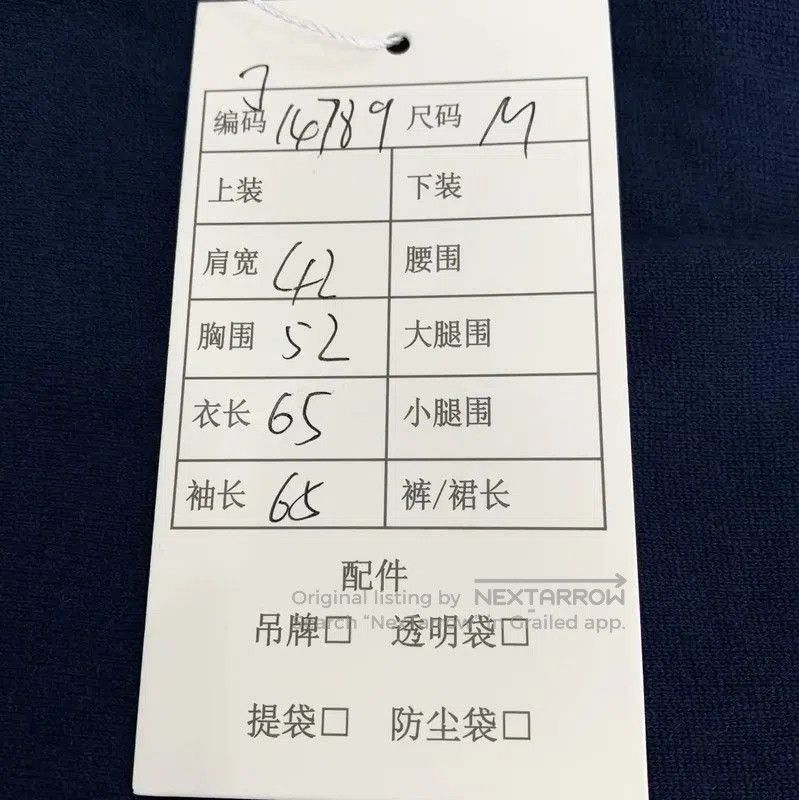 编码 14789 尺码 M
上装 下装
肩宽 42 腰围
胸围 52 大腿围
衣长 65 小腿围
袖长 65 裤/裙长
配件
Original listing by NEXTARROW
Search "Nextarrow" in Grailed app.
吊牌□ 透明袋□
提袋□ 防尘袋□